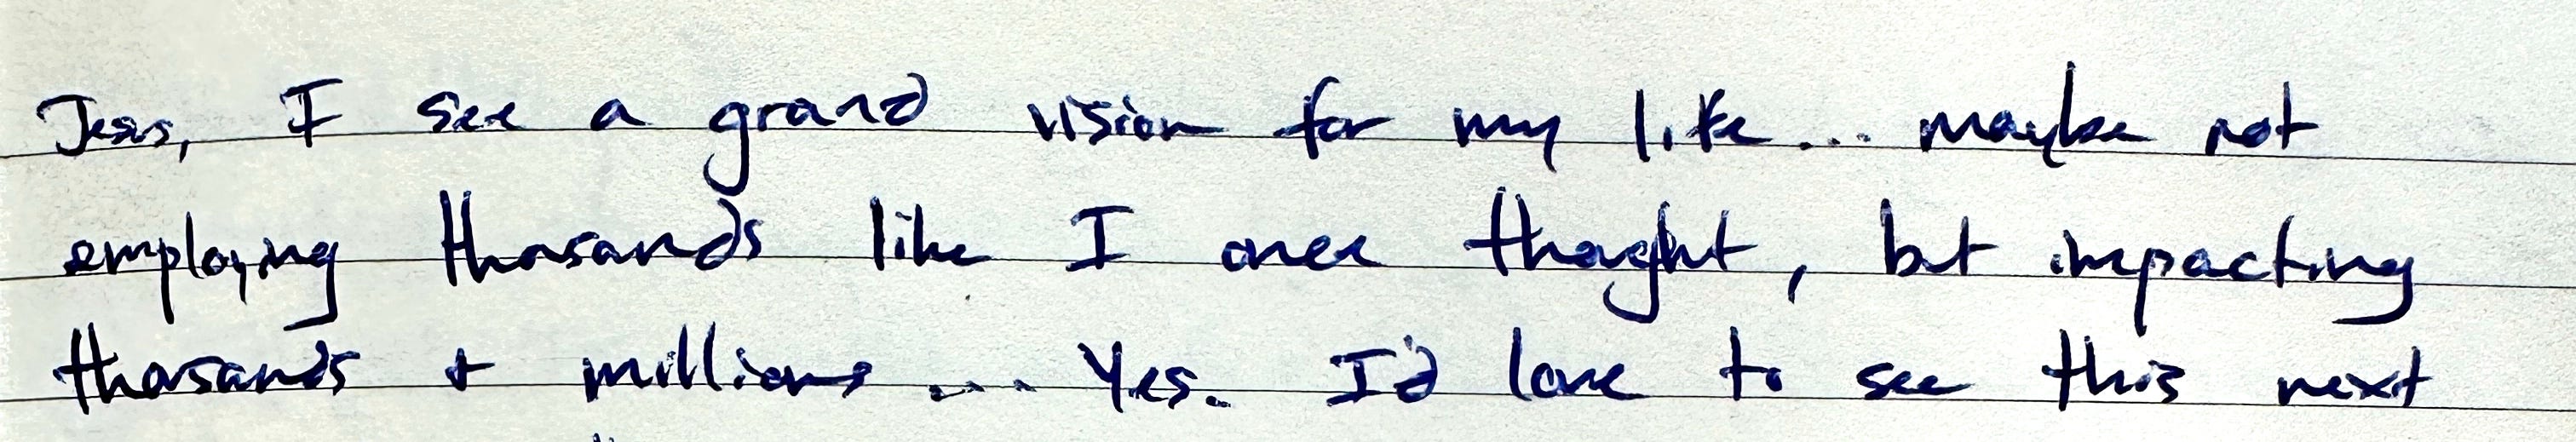 Jesus, I see a grand vision for my life... maybe not
employing thousands like I once thought, but impacting
thousands + millions... Yes. I'd love to see this next